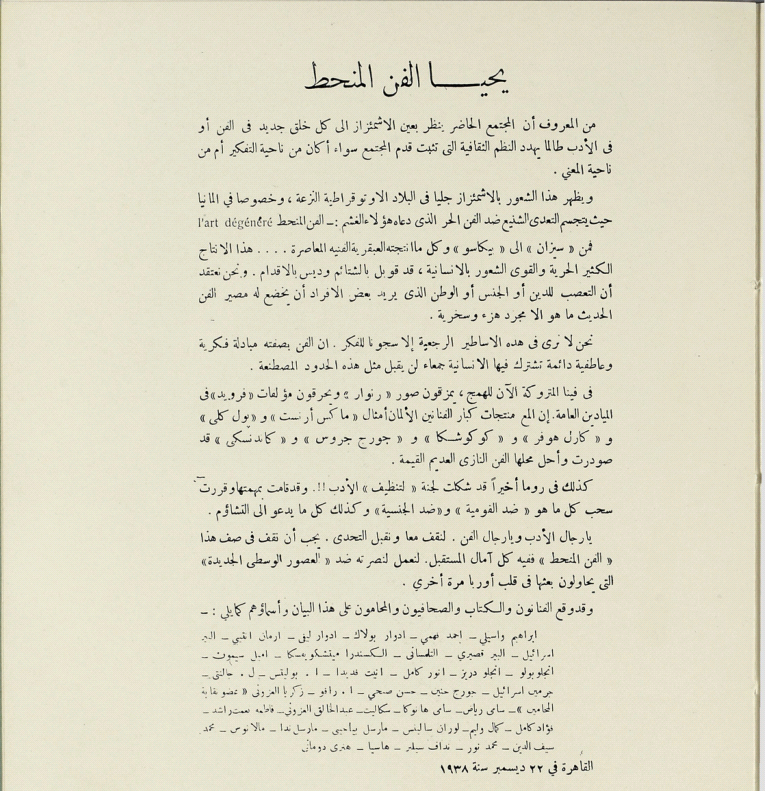 يحيــا الفن المنحط
من المعروف أن المجتمع الحاضر ينظر بعين الاشمئزاز الى كل خلق جديد فى الفن أو
فى الأدب طالما يهدد النظم الثقافية التى تثبت قدم المجتمع سواء أكان من ناحية التفكير أم من
ناحية المعنى .
و يظهر هذا الشعور بالاشمئزاز جليا فى البلاد الاوتوقراطية النزعة ، وخصوصا في المانيا
حيث يتجسم التعدى الشنيع ضد الفن الحر الذى دعاه هؤلاء الغشم :ــ الفن المنحط l'art dégénéré
فمن « سيزان » الى « بيكاسو » وكل ما انتجته العبقرية الفنيه المعاصرة . . . . هذا الانتاج
الكثير الحرية والقوى الشعور بالانسانية ، قد قوبل بالشتائم وديس بالاقدام . ونحن نعتقد
أن التعصب للدين أو الجنس أو الوطن الذى يريد بعض الافراد أن يخضع له مصير الفن
الحديث ما هو الا مجرد هزء وسخرية .
نحن لا نرى فى هده الاساطير الرجعية إلا سجونا للفكر . ان الفن بصفته مبادلة فكرية
وعاطفية دائمة تشترك فيها الانسانية جمعاء لن يقبل مثل هذه الحدود المصطنعة .
فى فينا المتروكة الآن للهمج ، يمزقون صور « رنوار » ويحرقون مؤلفات «فرويد» فى
الميادين العامة. إن المع منتجات كبار الفنانين الألمان أمثال « ماكس أرنست » و « بول كلى »
و « كارل هوفر » و « كوكوشكا » و « جورج جروس » و « كاندنسكى » قد
صودرت وأحل محلها الفن النازى العديم القيمة .
كذلك فى روما أخيراً قد شكلت لجنة « لتنظيف » الأدب !!. وقد قامت بمهمتها وقررت
سحب كل ما هو « ضد القومية » و«ضد الجنسية» وكذلك كل ما يدعو الى التشاؤم .
يا رجال الأدب ويا رجال الفن . لنقف معا ونقبل التحدى . يجب أن نقف فى صف هذا
« الفن المنحط » ففيه كل آمال المستقبل. لنعمل لنصرته ضد « العصور الوسطى الجديدة»
التى يحاولون بعثها فى قلب أوربا مرة أخرى .
وقد وقع الفنانون والكتاب والصحافيون والمحامون على هذا البيان وأسماؤهم كما يلى : ــ
ابراهيم واسيلى ــ احمد فهمي ــ ادوار بولاك ــ ادوار ليفى ــ ارمان انتيس ــ البير
اسرائيل ــ البير قصيرى ــ التلمسانى ــ الكسندرا ميتشكوبفسكا ــ اميل سيمون ــ
انجلو بولو ــ انجلو دريز ــ انور كامل ــ انيت فديدا ــ ا . بوليتس ــ ل . جالنتى ــ
جرمين اسرائيل ــ جورج حنين ــ حسن صبحي ــ ا . رافو ــ زكريا العزونى « عضو نقابة
المحامين » ــ سامى رياض ــ سامى هانوكا ــ سكاليت ــ عبد الخالق العزونى ــ فاطمه نعمت راشد ــ
فؤاد كامل ــ كمال وليم ــ لوران سالينس ــ مارسل بياجينى ــ مارسل ندا ــ مالانوس ــ محمد
سيف الدين ــ محمد نور ــ نداف سيلير ــ هاسيا ــ هنرى دومانى
القاهرة في ٢٢ ديسمبر سنة ١٩٣٨